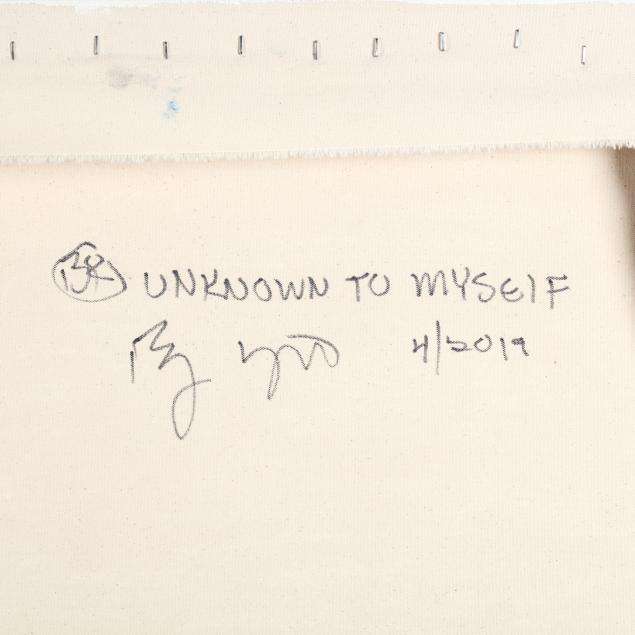 UNKNOWN TO MYSELF
4/2019